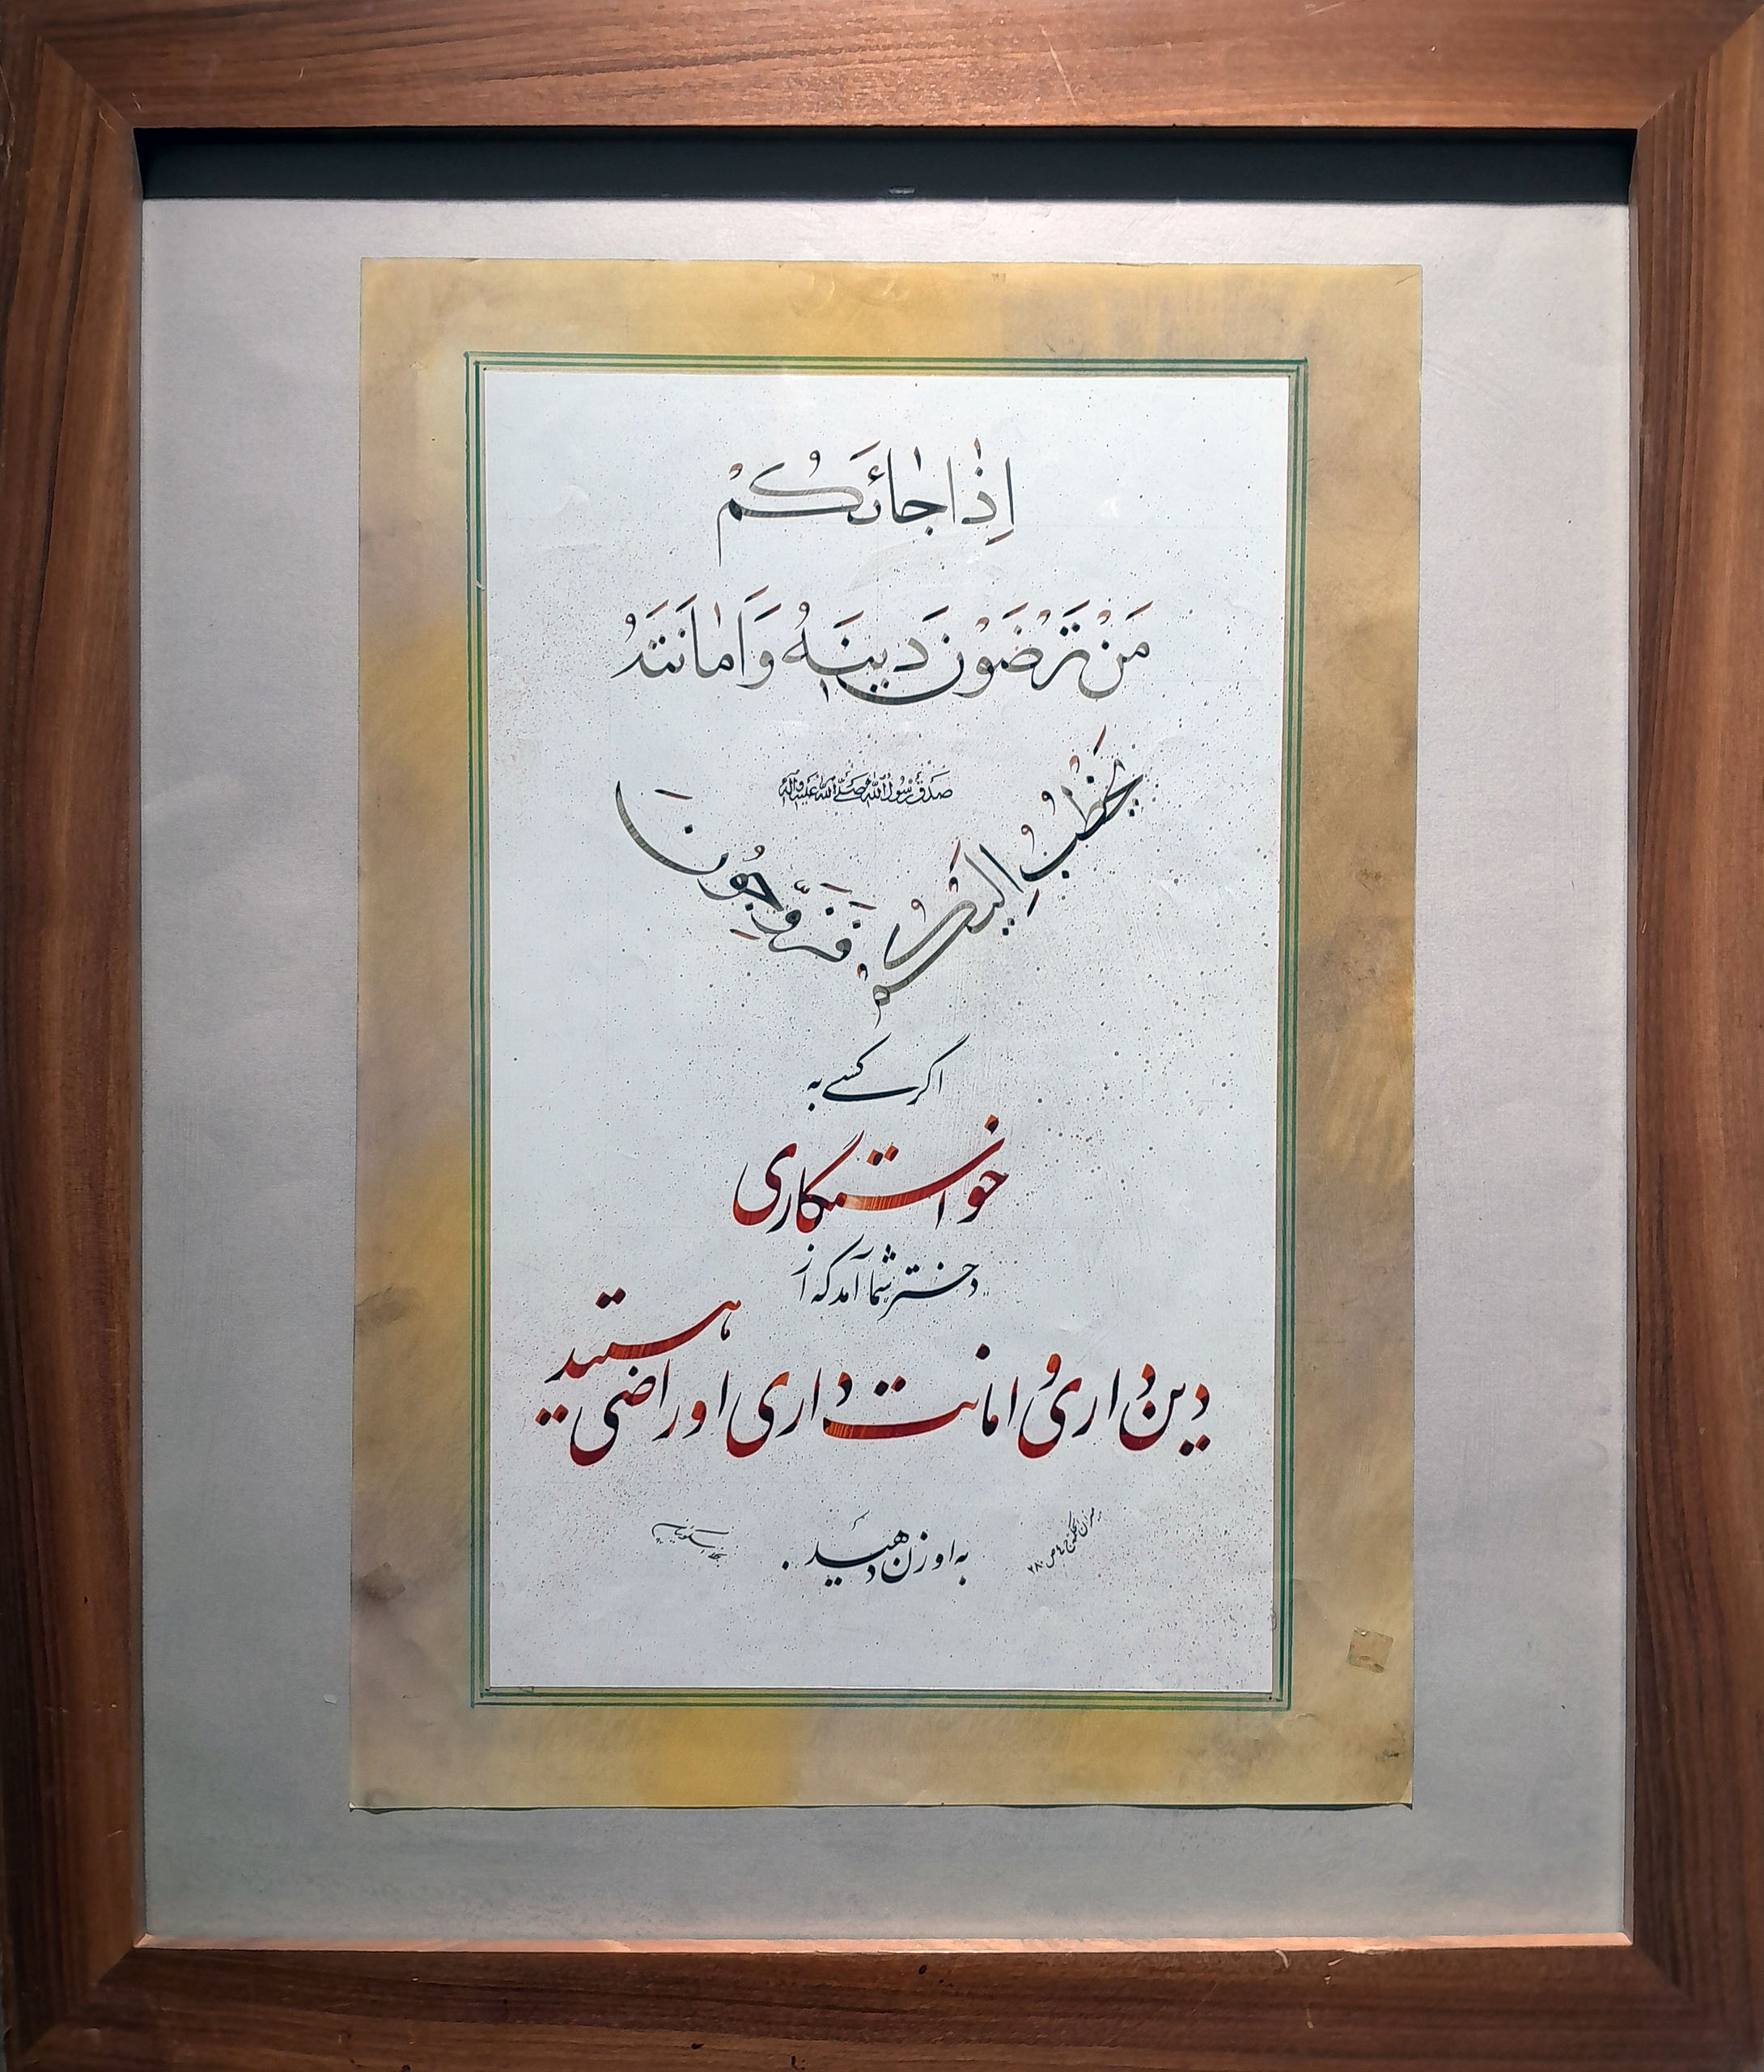 اِذٰا جٰائَکُمْ
مَنْ تَرْضَوْنَ دینَهُ وَ اَمٰانَتَهُ
یَخْطُبُ اِلَیْکُمْ فَزَوِّجُونَ
صَدَقَ رَسُولُ اللّٰه صَلَّی اللّٰه عَلَیْهِ وَ آلِه
اگر کسی به
خواستگاری
دختر شما آمد که از
دین داری و امانت داری او راضی هستید
به او زن دهید.
میزان الحکمه ج ۴ ص ۲۸۰